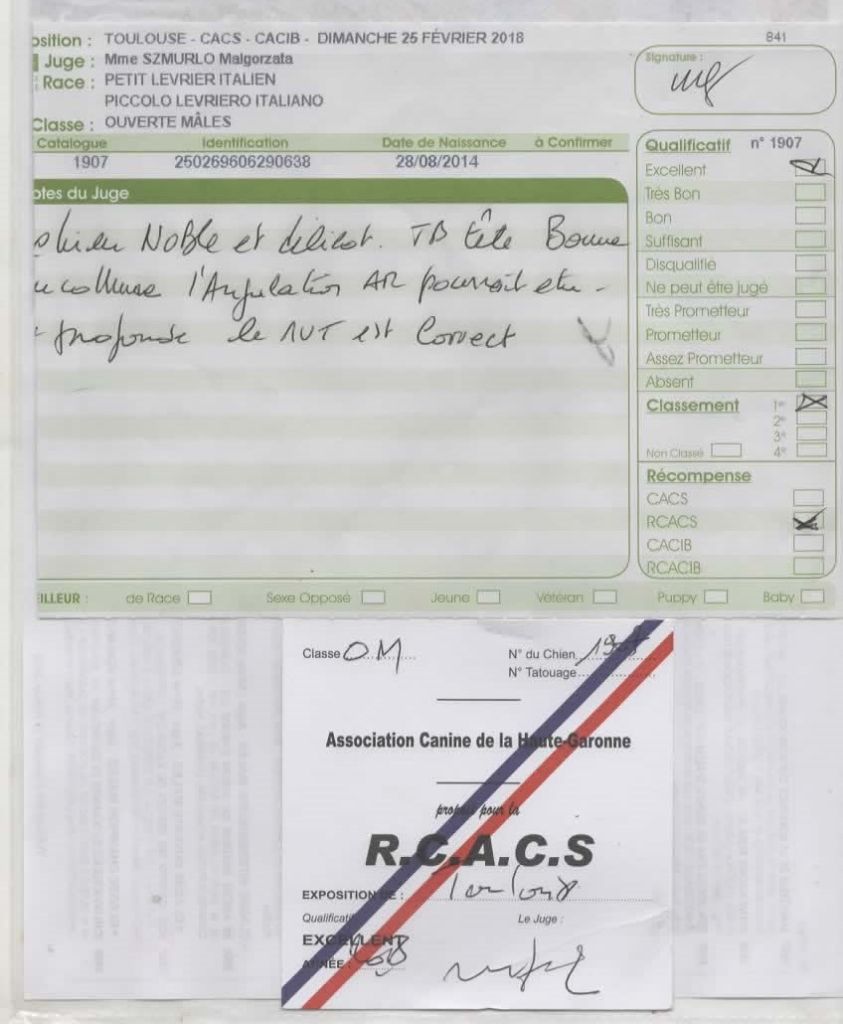 osition : TOULOUSE - CACS - CACIB - DIMANCHE 25 FÉVRIER 2018
841
Juge : Mme SZMURLO Malgorzata
Signature :
Race : PETIT LEVRIER ITALIEN
PICCOLO LEVRIERO ITALIANO
Classe : OUVERTE MÂLES
Catalogue Identification Date de Naissance à Confirmer
1907 250269606290638 28/08/2014
otes du Juge
chien Noble et délicat. TB tête Bonne
encollure l'Angulation AR pourrait etre
profonde le MVT est Correct
Qualificatif n° 1907
Excellent
Très Bon
Bon
Suffisant
Disqualifié
Ne peut être jugé
Très Prometteur
Prometteur
Assez Prometteur
Absent
Classement 1er
2e
3e
Non Classé 4e
Récompense
CACS
RCACS
CACIB
RCACIB
EILLEUR : de Race Sexe Opposé Jeune Vétéran Puppy Baby
Classe OM N° du Chien 1907
N° Tatouage
Association Canine de la Haute-Garonne
proposé pour la
R.C.A.C.S
EXPOSITION DE : Toulouse
Qualificatif Le Juge :
EXCELLENT
ANNÉE : 2018